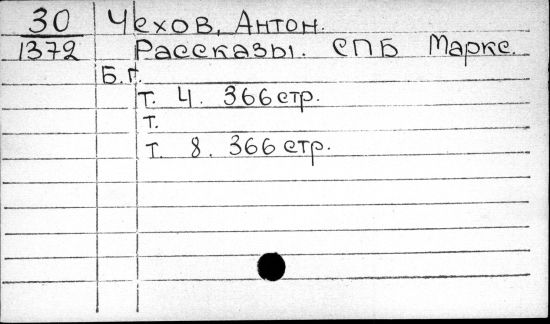 30 Чехов, Антон.
1372 Рассказы. СПБ Маркс.
Б.г.
т. 4. 366 стр.
т.
т. 8. 366 стр.